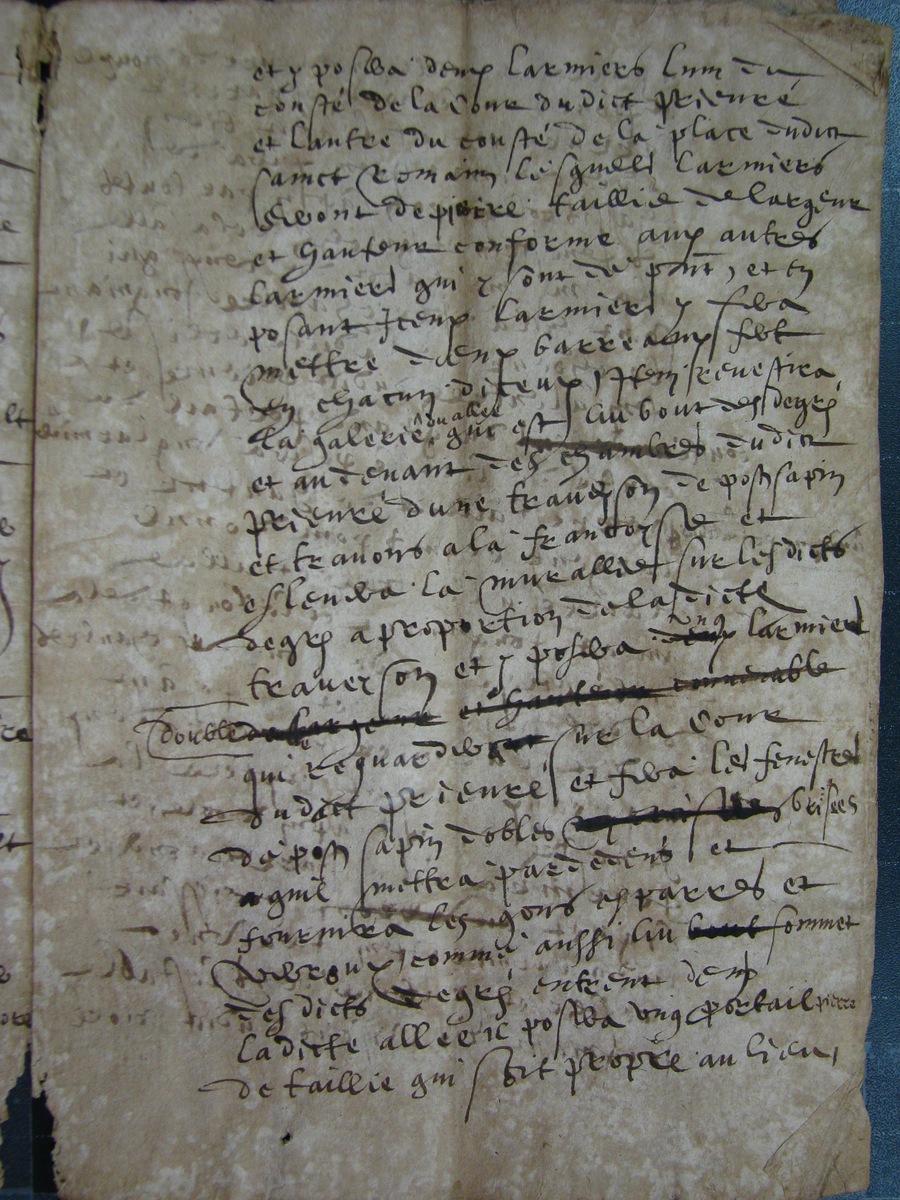 et y posera deux larmiers lun du
cousté de la Cour dudict prieuré
et lautre du cousté de la place dudict
sainct Romain lesquelz larmiers
seront de pierre taillie de largeur
et hauteur conforme aux autres
larmiers qui y sont de pnt, et en
posant Iceux larmiers y fera
mettre deux barreaux fert
en chacun diceux Item revestira
la galerie ou allee qui est au bout des degrez
et au devant des chambres dudict
prieuré dune traverson de postz sapin
et travons a la francoise et
eslevera la muraillie sur lesdicts
degrez a proportion de ladicte
traverson et y posera deux ung larmier
double de largeur et haulteur convenable
qui reguardera sur la Cour
dudict prieuré et fera les fenestres
de postz sapin dobles brisees
a quil mettra par dedens et
fournira les gons esparres et
verroux comme aussi au bout sommet
desdicts degrez entrent dens
ladicte allee il posera ung portail pierre
de taillie qui soit propre au lieu,